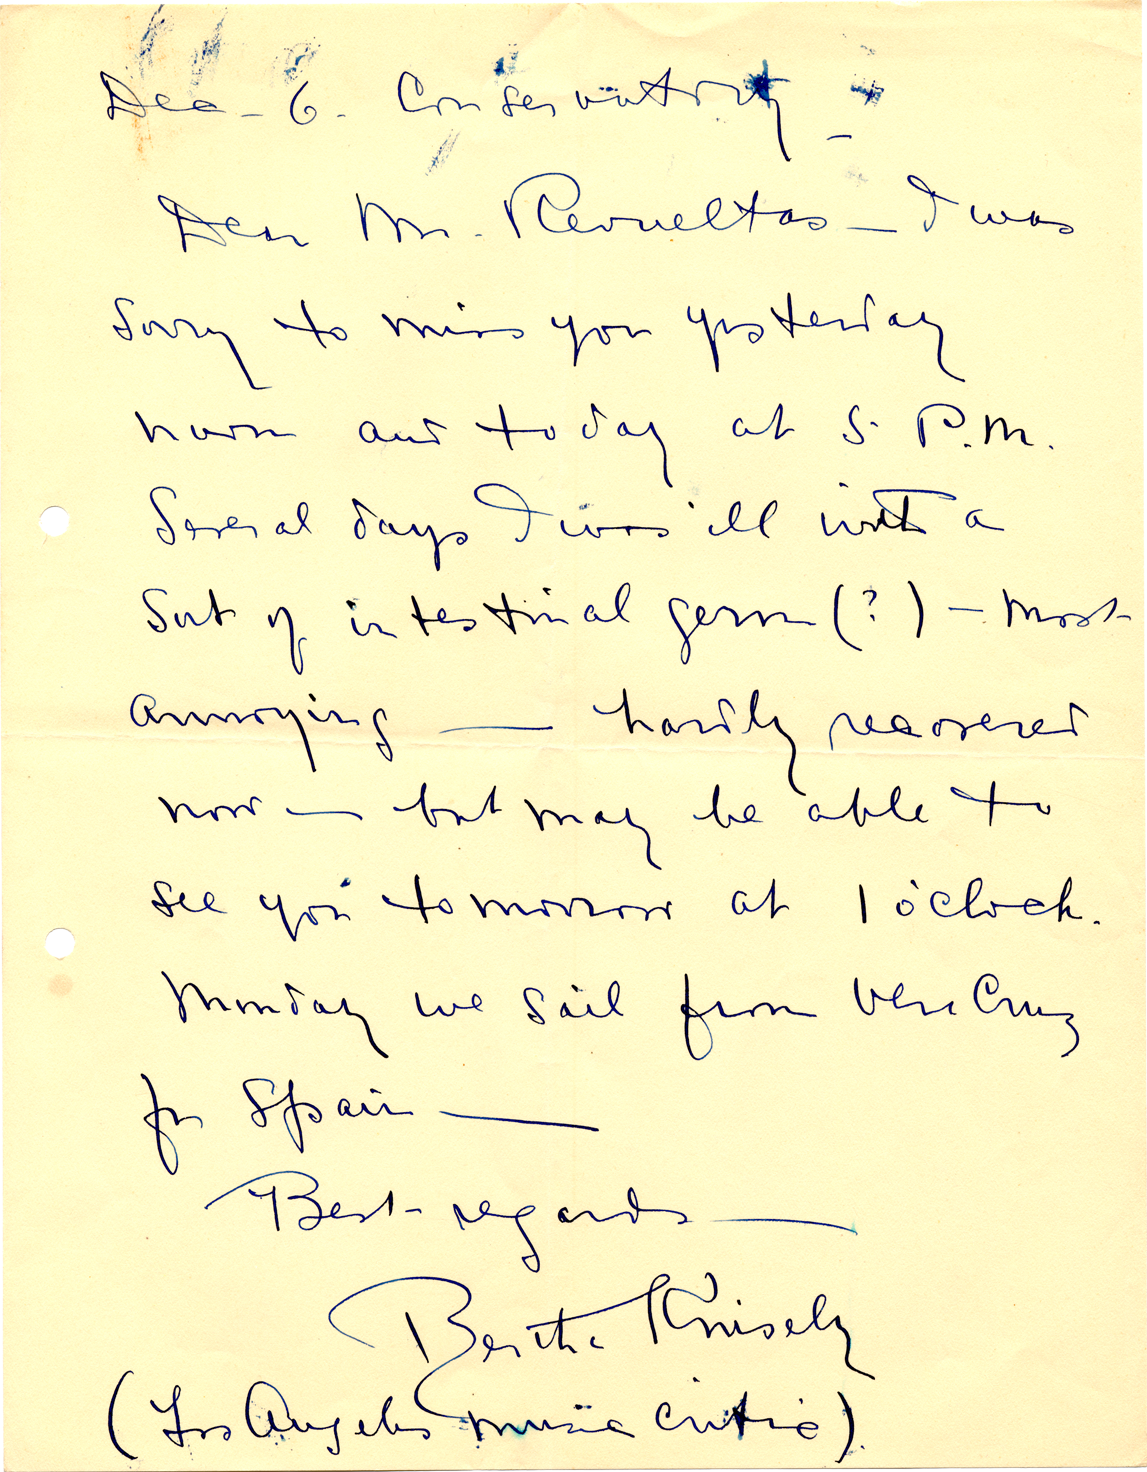 Dec - 6. Conservatory -
Dear Mr. Revueltas - I was
sorry to miss you yesterday
noon and today at 5. P.M.
Several days I was ill with a
sort of intestinal germ (?) - most
annoying — hardly recovered
now — but may be able to
see you tomorrow at 1 o'clock.
Monday we sail from Vera Cruz
for Spain —
Best regards —
Bertha Knisely
(Los Angeles music critic).